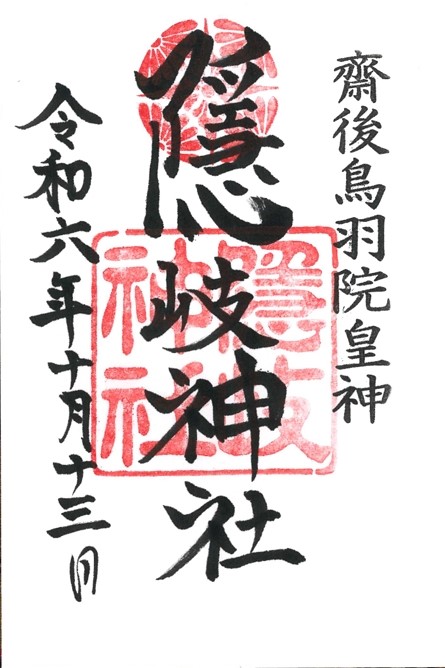 齋後鳥羽院皇神
隠岐神社
隠岐
神社
令和六年十月十三日